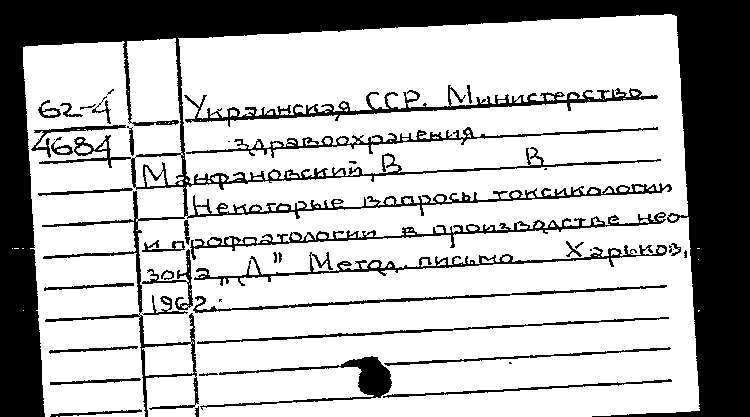 62-4 Украинская ССР. Министерство
4684 здравоохранения.
Манфановский, В В
Некоторые вопросы токсикологии
и профпатологии в производстве нео-
зона „Д" Метод. письмо. Харьков,
1962.